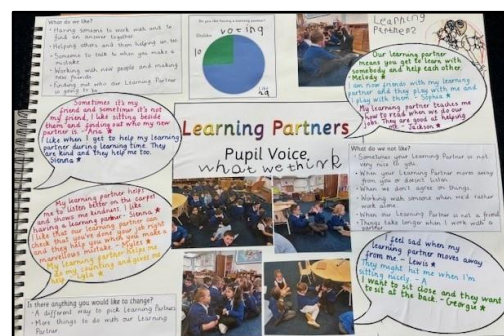 What do we like?
- Having someone to work with and to
find an answer together
- Helping others and then helping us too
- Someone to talk to when you make a
mistake
- Working with new people and making
new friends
- Finding out who our Learning Partner
is going to be
Do you like having a learning partner?
voting
10
Learning
Partners
Our learning partner
means you get to learn with
somebody and help each other.
Melody
I am now friends with my learning
partner and they play with me and
I play with them. - Sophia
My learning partner teaches me
how to read when we do our
job. They are good at helping
me. - Jackson
Sometimes it's my
friend and sometimes it's not
my friend. I like sitting beside
them and finding out who my new
partner is. - Aria
I like when I get to help my learning
partner during learning time. They
are kind and they help me too.
Sienna
Learning Partners
Pupil Voice
what we think
What do we not like?
- Sometimes your Learning Partner is not
very nice to you
- When your Learning Partner moves away
from you or doesn't listen
- When we don't agree on things
- Working with someone when we'd rather
work alone
- When our Learning Partner is not a friend
- Things take longer when I work with a
partner
My learning partner helps
me to listen better on the carpet
and shows me kindness. I like
having a learning partner. - Sienna
I like that our learning partner can
check that you've done your job right
and they help you when you make a
marvellous mistake. - Myles
My learning partner helps me
do my counting and gives me
help. - Lyla
I feel sad when my
learning partner moves away
from me. - Lewis
They might hit me when I'm
sitting nicely. - A
I want to sit close and they want
to sit at the back. - Georgie
Is there anything you would like to change?
- A different way to pick Learning Partners
- More things to do with our Learning
Partner.